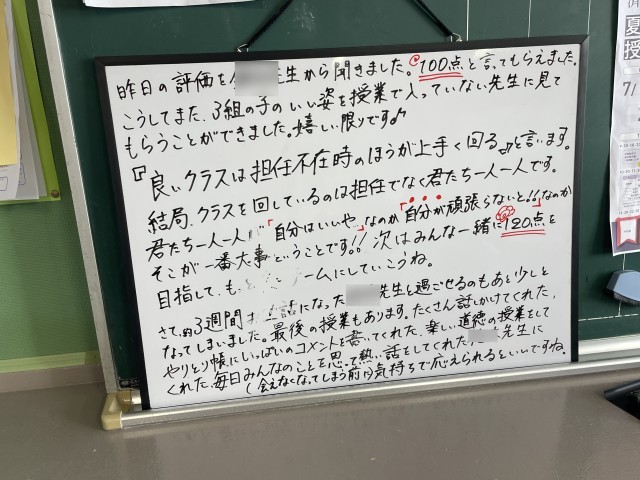 昨日の評価を 先生から聞きました。100点と言ってもらえました。
こうしてまた、3組の子のいい姿を授業で入っていない先生に見て
もらうことができました。嬉しい限りです♪
『良いクラスは担任不在時のほうが上手く回る』と言います。
結局、クラスを回しているのは担任でなく君たち一人一人です。
君たち一人一人が「自分はいいや」なのか「自分が頑張らないと!!」なのか
そこが一番大事ということです!! 次はみんなで一緒に120点を
目指して、も チームにしていこうね。
さて、約3週間 お世話になった 先生と過ごせるのもあと少しと
なってしまいました。最後の授業もあります。たくさん話しかけてくれた、
やりとり帳にいっぱいのコメントを書いてくれた、楽しい道徳の授業をして
くれた、毎日みんなのことを思って熱い話をしてくれた 先生に
(会えなくなってしまう前に)気持ちで応えられるといいですね。
夏
授
7/